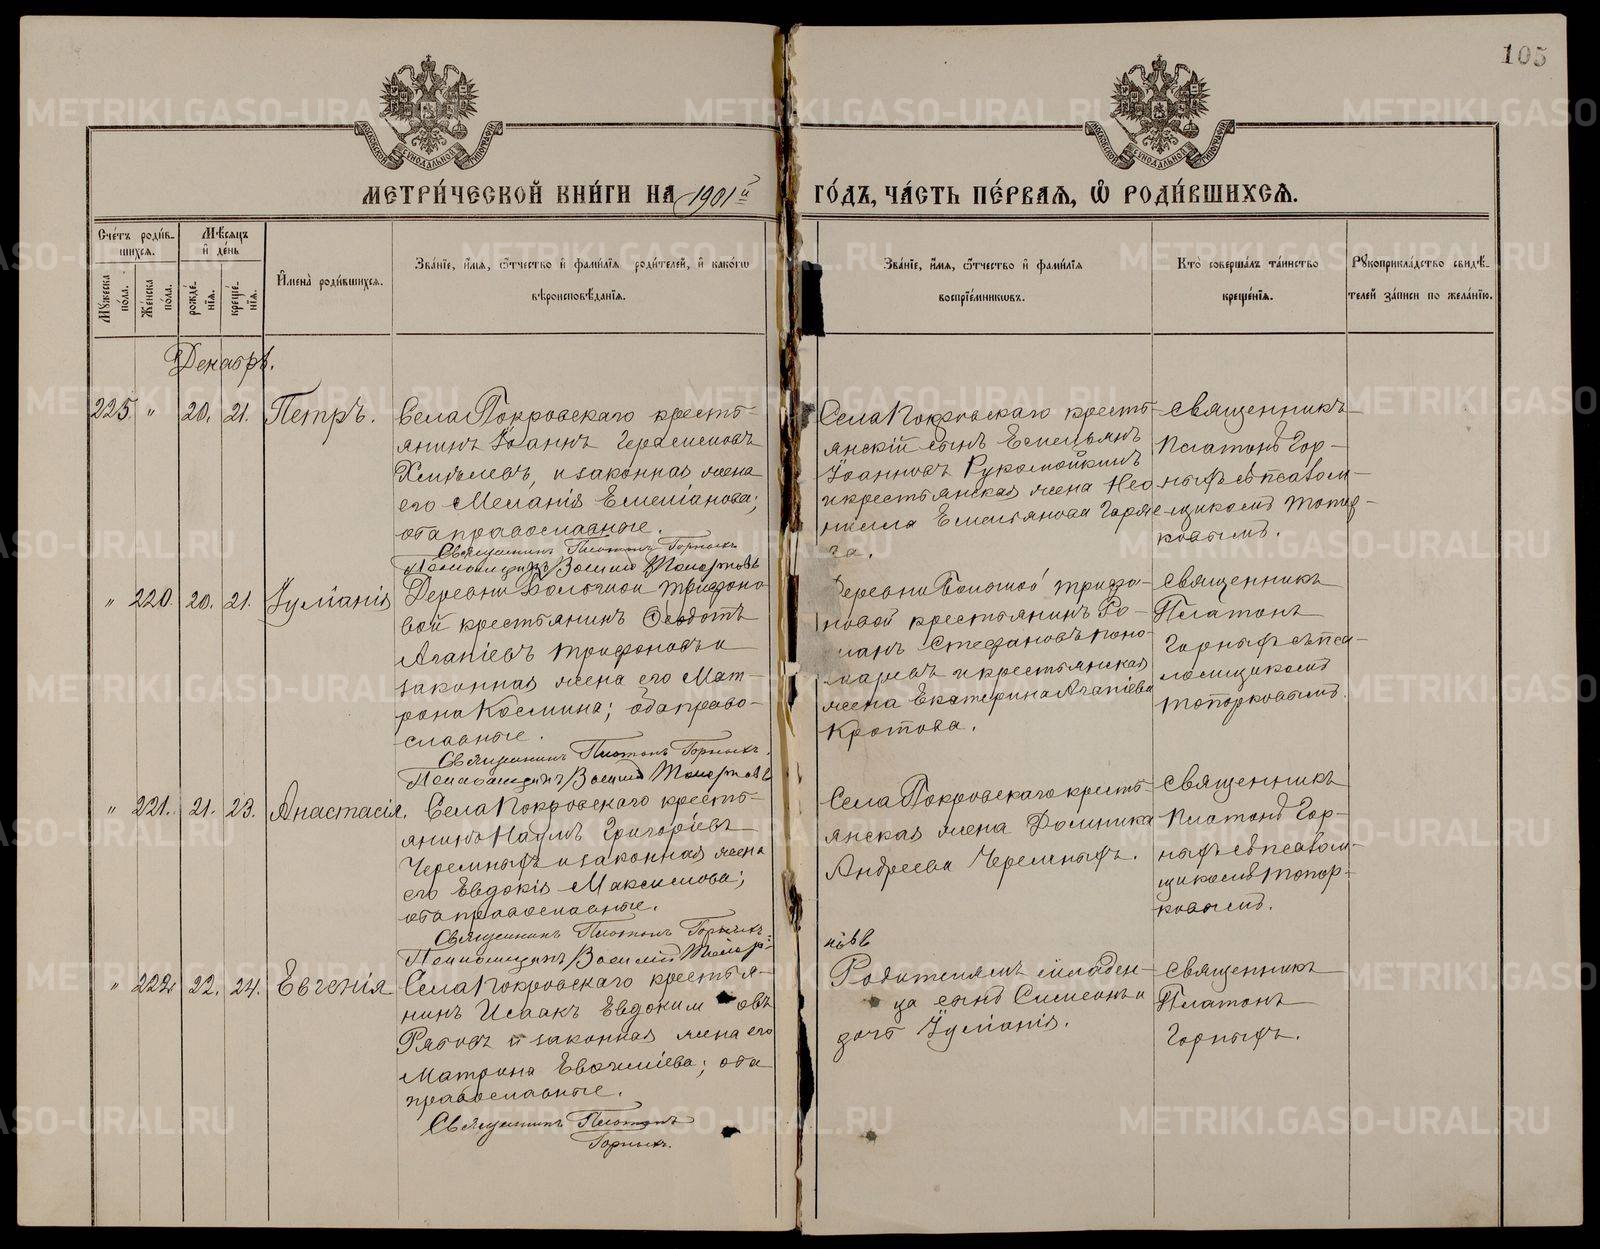 105
МЕТРИ́ЧЕСКОЙ КНИ́ГИ НА 1901й ГО́ДЪ, ЧА́СТЬ ПЕ́РВАЯ, Ѿ РОДИ́ВШИХСЯ.
Сче́тъ роди́в-
шихся.
Мꙋ́жеска по́ла.
Же́нска по́ла.
Мѣ́сяцъ и҆ де́нь
рожде́нїя.
креще́нїя.
И҆мена̀ роди́вшихся.
Зва́нїе, и҆́мя, ѻ҆́тчество и҆ фами́лїя роди́телей, и҆ како́гѡ
вѣроисповѣ́данїя.
Зва́нїе, и҆́мя, ѻ҆́тчество и҆ фами́лїя
воспрїе́мникѡвъ.
Кто̀ соверша́лъ та́инство
креще́нїя.
Рꙋкоприкла́дство свидѣ́-
телей за́писи по жела́нїю.
Декабрь.
225 " 20. 21. Петръ.
Села Покровскаго кресть-
янинъ Іоаннъ Герасимовъ
Хмѣлевъ, и законная жена
его Меланія Емеліанова;
оба православные.
Священникъ Платонъ Горныхъ
Псаломщикъ Василій Топорковъ
Села Покровскаго кресть-
янскій сынъ Емельянъ
Іоанновъ Рукомойкинъ
и крестьянская жена Нео-
нилла Емельянова
Священникъ
Платонъ Гор-
ныхъ съ псалом-
щикомъ Топор-
ковымъ.
" 220. 20. 21. Іуліанія
Деревни Большой Трифоно-
вой крестьянинъ Ѳеодотъ
Агапіевъ Трифоновъ и
законная жена его Мат-
рона Космина; оба право-
славные.
Священникъ Платонъ Горныхъ.
Псаломщикъ Василій Топорковъ
Деревни Большой Трифо-
новой крестьянинъ Ро-
манъ Стефановъ Поно-
маревъ и крестьянская
жена Екатерина Агапіева
Кротова.
Священникъ
Платонъ
Горныхъ съ пса-
ломщикомъ
Топорковымъ.
" 221. 21. 23. Анастасія.
Села Покровскаго кресть-
янинъ Наумъ Григоріевъ
Черемныхъ и законная жена
его Евдокія Максимова;
оба православные.
Священникъ Платонъ Горныхъ
Псаломщикъ Василій Топор-
ковъ
Села Покровскаго кресть-
янская жена Домника
Андреева Черемныхъ.
Священникъ
Платонъ Гор-
ныхъ съ псалом-
щикомъ Топор-
ковымъ.
" 222. 22. 24. Евгенія
Села Покровскаго крестья-
нинъ Исаакъ Евдокимовъ
Рябовъ и законная жена его
Матрона; оба
православные.
Священникъ Платонъ
Горныхъ.
Родителямъ младен-
ца сынъ Симеонъ и
дочь Іуліанія.
Священникъ
Платонъ
Горныхъ.
METRIKI.GASO-URAL.RU